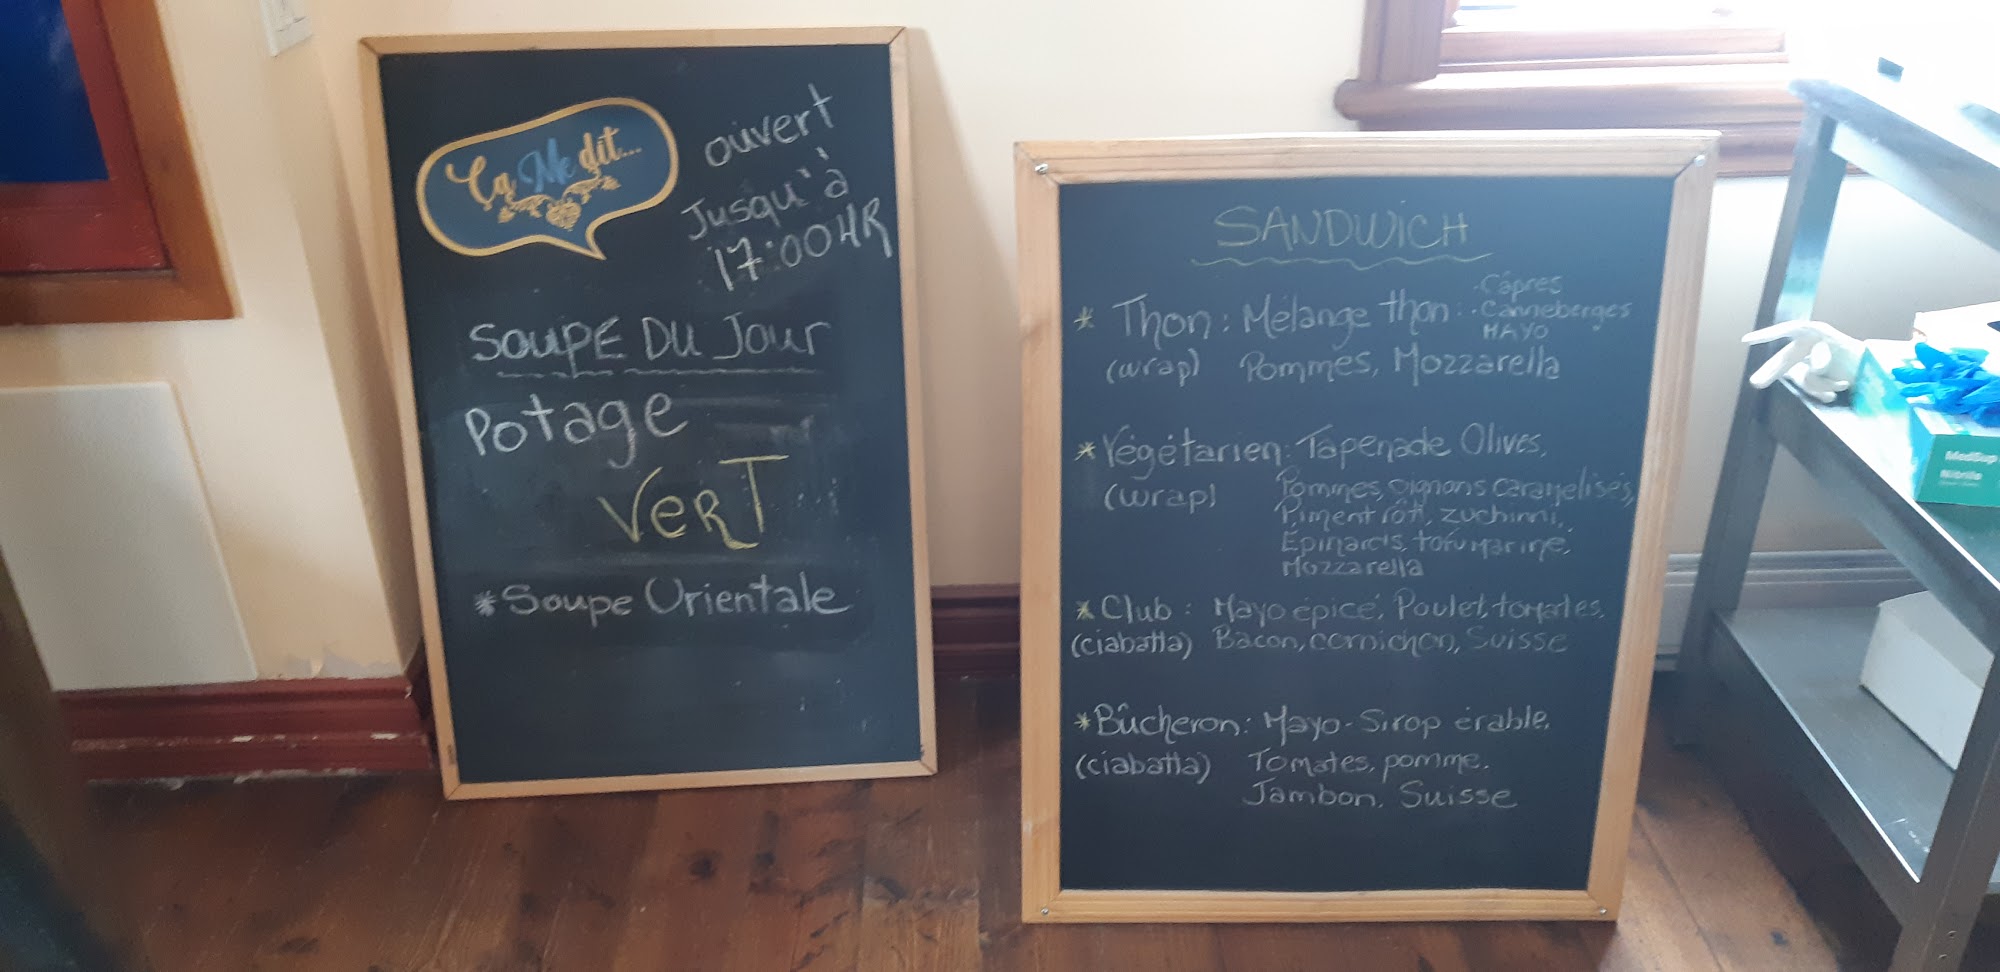 Ça Me dit...
ouvert
Jusqu'à
17:00HR
SOUPE DU Jour
Potage
VerT
*Soupe Orientale
SANDWICH
* Thon: Mélange thon: · Câpres
· Canneberges
MAYO
(wrap) Pommes, Mozzarella
* Végétarien: Tapenade Olives,
(wrap) Pommes, oignons caramelisés,
Piment roti, zuchinni,
Epinards, tofu mariné,
Mozzarella
* Club: Mayo épicé, Poulet, tomates,
(ciabatta) Bacon, cornichon, Suisse
* Bûcheron: Mayo-Sirop érable,
(ciabatta) Tomates, pomme,
Jambon, Suisse
MedSup
Nitrile